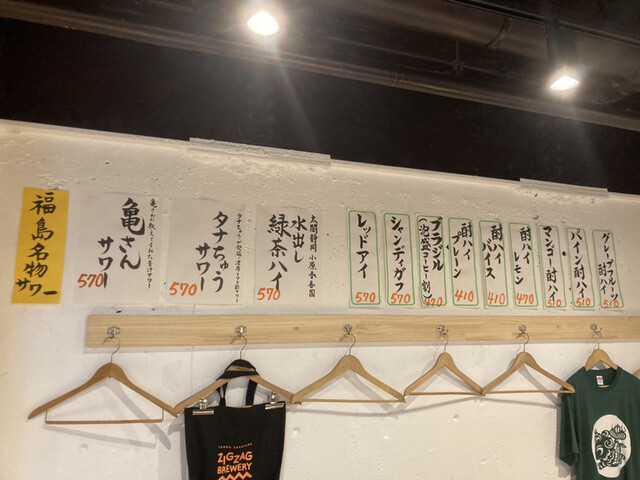 福島名物サワー
亀さんサワー
570
タナちゅうサワー
570
水出し緑茶ハイ
570
レッドアイ
570
シャンディガフ
570
ブラジル
(泡盛コーヒー割)
470
酎ハイ
プレーン
410
酎ハイ
バイス
510
酎ハイ
レモン
470
マンゴー酎ハイ
510
パイン酎ハイ
510
グレープフルーツ
酎ハイ
510
ZIGZAG
BREWERY